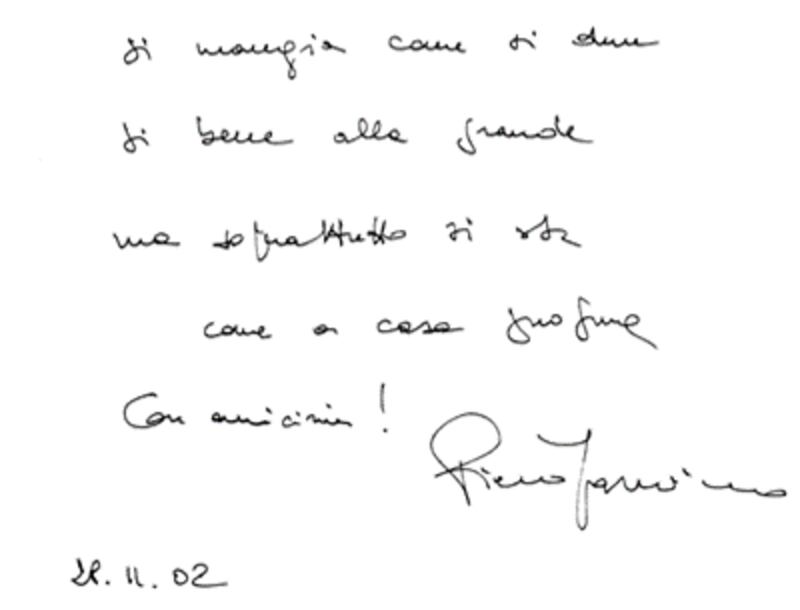 Si mangia come si deve
si beve alla grande
ma soprattutto si sta
come a casa propria
Con amicizia!
Piero
28.11.02